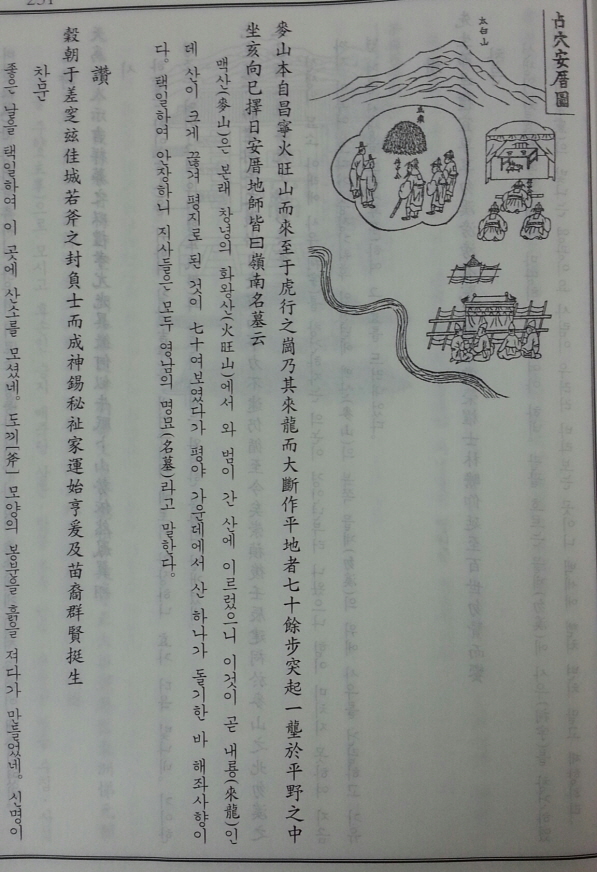 占穴安厝圖
太白山
麥山本自昌寧火旺山而來至于虎行之崗乃其來龍而大斷作平地者七十餘步突起一壟於平野之中
坐亥向巳擇日安厝地師皆曰嶺南名墓云
맥산(麥山)은 본래 창녕의 화왕산(火旺山)에서 와 범이 간 산에 이르렀으니 이것이 곧 내룡(來龍)인
데 산이 크게 끊겨 평지로 된 것이 七十여보였다가 평야 가운데에서 산 하나가 돌기한 바 해좌사향이
다. 택일하여 안장하니 지사들은 모두 영남의 명묘(名墓)라고 말한다.
讚
穀朝于差定玆佳城若斧之封負士而成神錫秘祉家運始亨爰及苗裔群賢挺生
찬문
좋은 날을 택일하여 이 곳에 산소를 모셨네. 도끼(斧) 모양의 봉분을 흙을 져다가 만들었네. 신명이